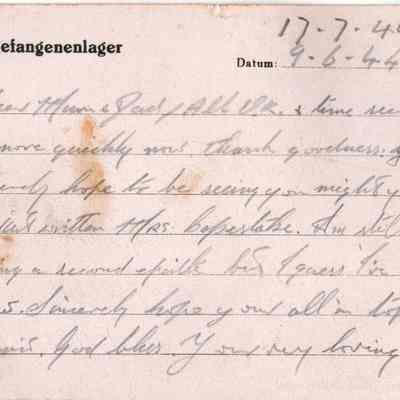 17-7-44
efangenenlager
Datum: 9-6-44
ear Mum & Dad, All O.K. & time see
move quickly now, thank goodness.
hope to be seeing you mighty
written Mrs. Coperstake. Am stil
a second epistle but I guess I've
s. Sincerely hope your all in to
God bless. Your very loving